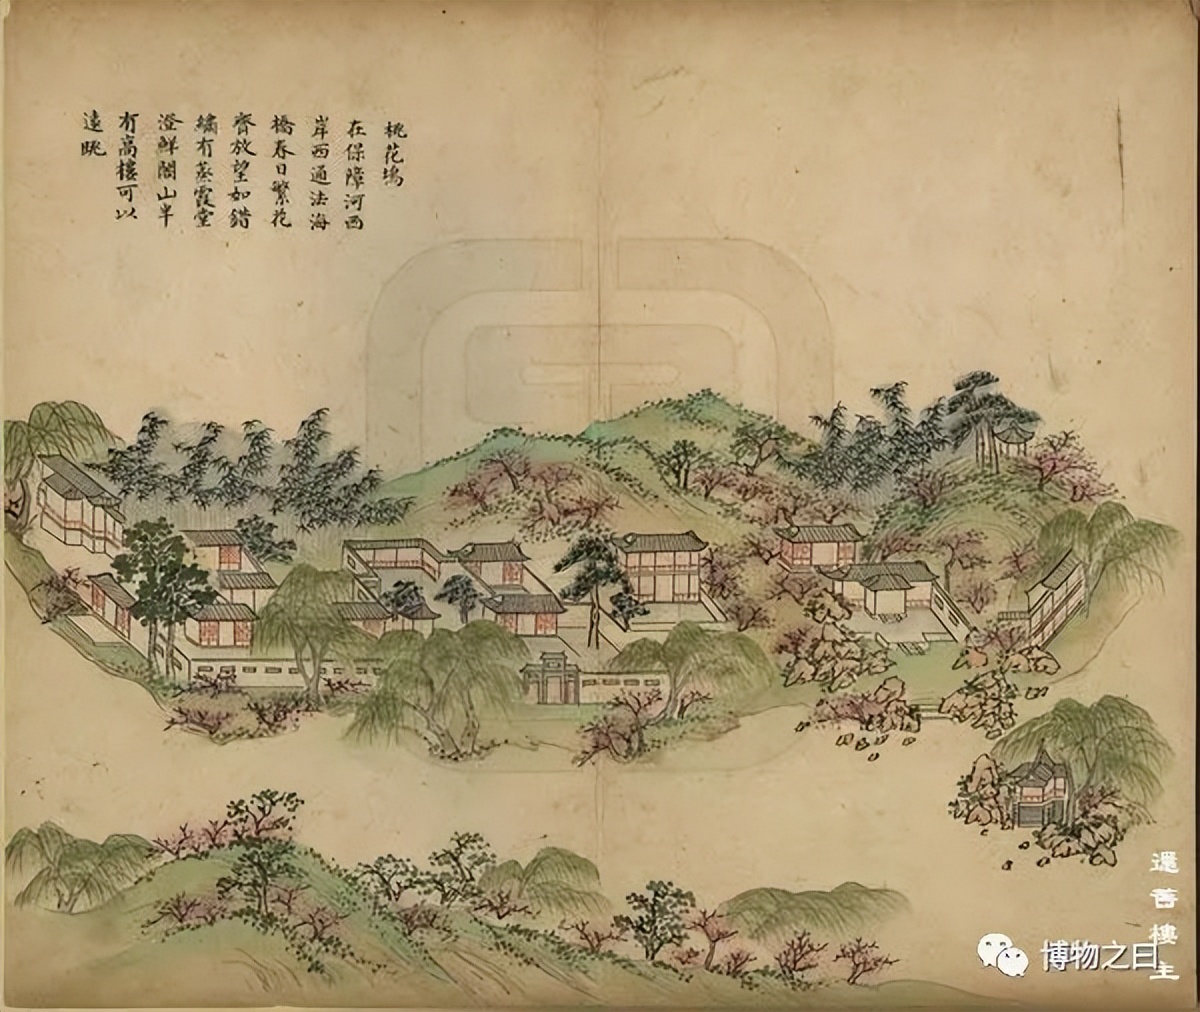 桃花塢
在保障河西
岸西通法海
橋春日繁花
齊放望如錯
繡有蒸霞堂
澄鮮閣山半
有高樓可以
遠眺
還舊樓主
博物之曰